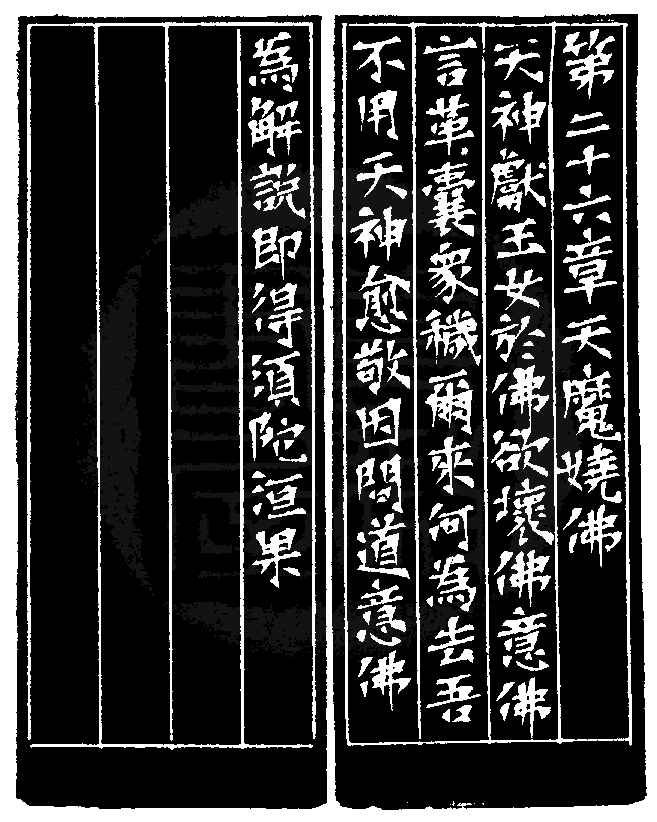 第二十六章天魔嬈佛
天神獻玉女於佛欲壞佛意佛
言革囊衆穢爾來何為去吾
不用天神愈敬因問道意佛
為解説即得須陀洹果